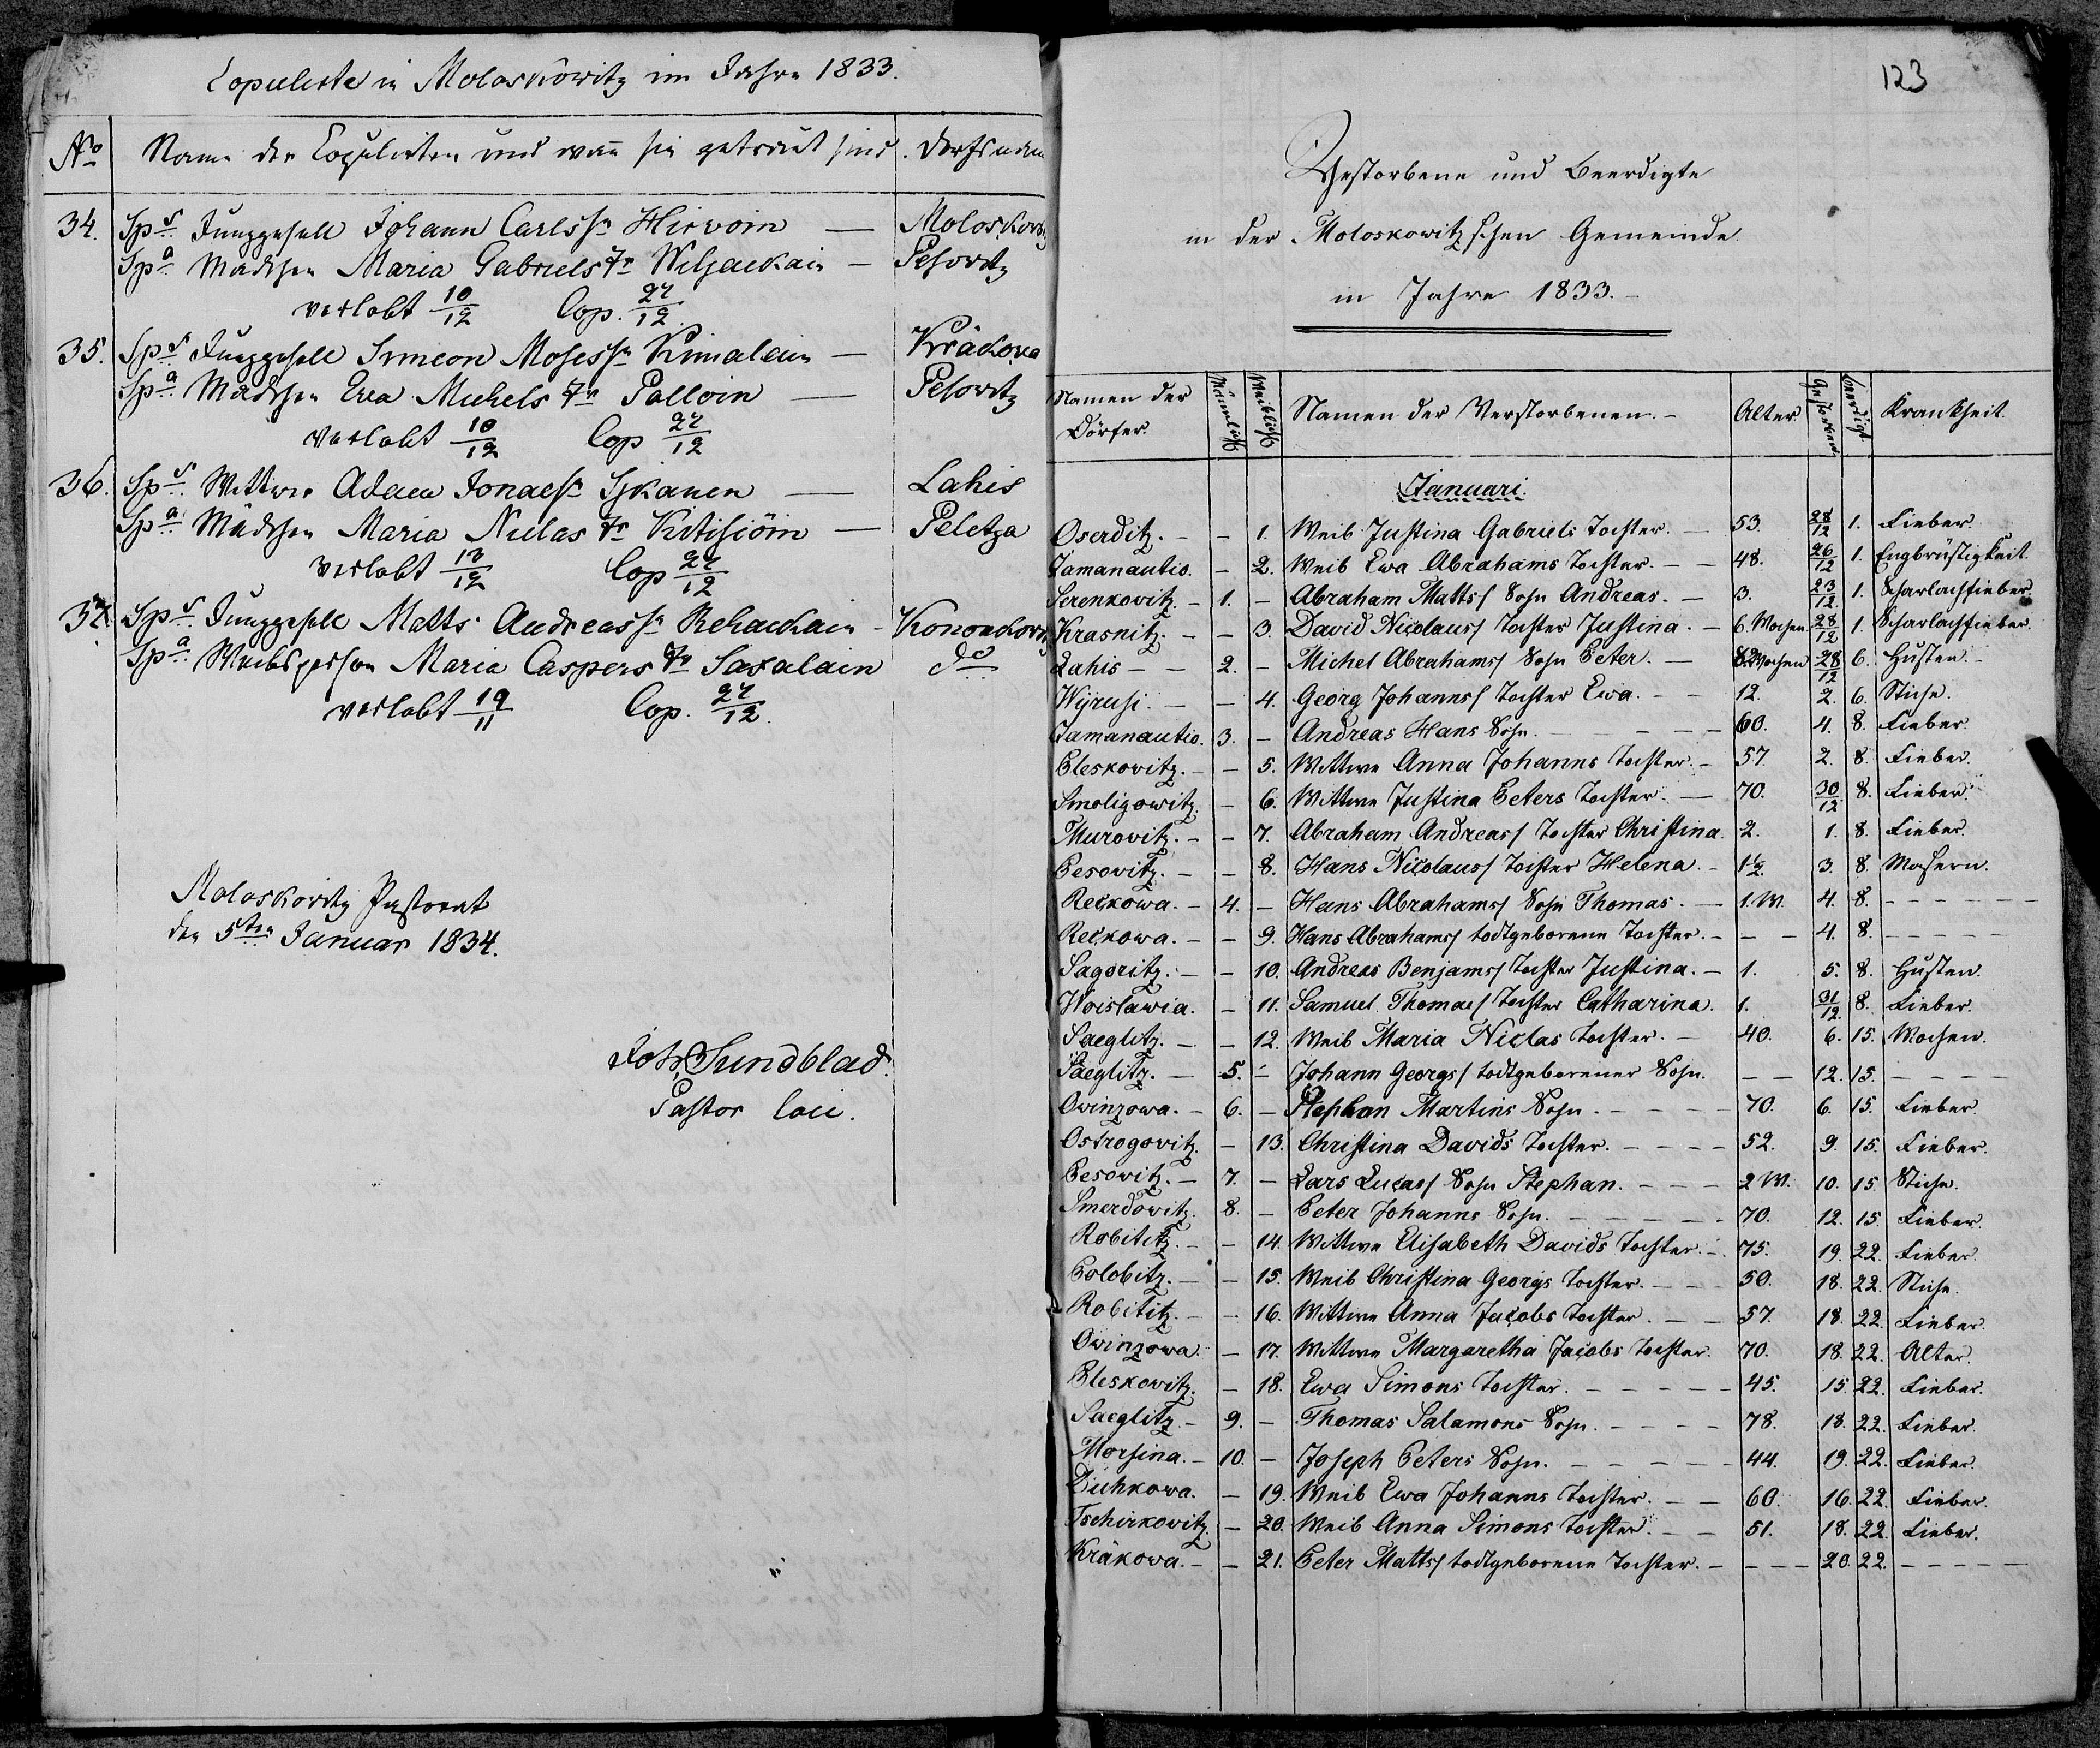 Copulirte in Moloskowitz im Jahre 1833.
No Name der Copulirten und wan sie getraut sind. Dorfsnamen
34. Sps. Junggesell Johann Carlssn Hirvoin — Moloskowitz
Spa. Mädchen Maria Gabriels tr Wiljackain — Pesowitz
verlobt 10/12 Cop. 27/12
35. Sps. Junggesell Simeon Mosessn Kimalain — Kräkowa
Spa. Mädchen Eva Michels tr Palloin — Pesowitz
verlobt 10/12 Cop 27/12
36. Sps. Wittwer Adam Jonaesn Sykänen — Lahis
Spa. Mädchen Maria Niclas tr — Peletza
verlobt 13/12 Cop 27/12
37. Sps. Junggesell Matts Andreassn Rehackain - Kononkowitz
Spa. Weibsperson Maria Caspers tr Saxalain do
verlobt 19/11 Cop. 27/12.
Moloskowitz Pastorat
den 5ten Januar 1834.
Joh. Sundblad.
Pastor loci.
123
Gestorbene und Beerdigte
in der Moloskowitzschen Gemeinde
im Jahre 1833.-
Namen der Dörfer. Männlich Weiblich Namen der Verstorbenen.- Alter. Gestorben Beerdigt Krankheit.
Januari.
Oserditz. - - 1. Weib Justina Gabriels Tochter. - 53. 28/12 1. Fieber.
Jamanautio. - 2. Weib Ewa Abrahams Tochter. - - 48. 26/12 1. Engbrüstigkeit.
Serenkovitz. - 1. - Abraham Matts/ Sohn Andreas. - 3. 23/12. 1. Scharlachfieber.
Krasnitz. - - 3. David Nicolaus/ Tochter Justina. - 6. Wochen 28/12 1. Scharlachfieber.
Lahis - - 2. - Michel Abrahams/ Sohn Peter. - Wochen 28/12 6. Husten.-
Wÿrusi. - - 4. Georg Johanns/ Tochter Ewa. - - 12. 2. 6. Stiche.
Jamanautio. 3. - Andreas Hans Sohn. - - - - 60. 4. 8. Fieber.
Pleskovitz. - - 5. Wittwe Anna Johanns Tochter. - 57. 2. 8. Fieber.
Smoligowitz. - 6. Wittwe Justina Peters Tochter. - 70. 30/12 8. Fieber.
Murovitz. - - 7. Abraham Andreas/ Tochter Christina. 2. 1. 8. Fieber.
Pesovitz. - - 8. Hans Nicolaus/ Tochter Helena. - 1½. 3. 8. Masern.
Reckowa. - 4. - Hans Abrahams/ Sohn Thomas. - 1. W. 4. 8. - - - - - -
Reckowa. - - 9. Hans Abrahams/ todtgeborene Tochter. - - - 4. 8. - - - - -
Sagoritz. - - 10. Andreas Benjams/ Tochter Justina. - 1. 5. 8. Husten.
Woislawia. - 11. Samuel Thomae/ Tochter Catharina. 1. 31/12 8. Fieber.
Saeglitz. - - 12. Weib Maria Niclas Tochter. - 40. 6. 15. Wochen.
Saeglitz. - 5. - Johann Georgs/ todtgeborener Sohn. - - 12. 15. - - - -
Owinzowa. - 6. - Stephan Martins Sohn. - - - - 70. 6. 15. Fieber.
Ostrogovitz. - 13. Christina Davids Tochter. - - - - 52. 9. 15. Fieber.
Pesovitz. - 7. - Lars Lucas/ Sohn Stephan. - - - 2 W. 10. 15. Stiche.
Smerdowitz. 8. - Peter Johanns Sohn. - - - - - 70. 12. 15. Fieber.
Robititz. - - 14. Wittwe Elisabeth Davids Tochter. - 75. 19. 22. Fieber.
Polobitz. - - 15. Weib Christina Georgs Tochter. - - - 50. 18. 22. Stiche.
Robititz. - - 16. Wittwe Anna Jacobs Tochter. - - 57. 18. 22. Fieber.
Owinzowa. - 17. Wittwe Margaretha Jacobs Tochter. 70. 18. 22. Alter.
Pleskovitz. - 18. Ewa Simons Tochter. - - - - - 45. 15. 22. Fieber.
Saeglitz. - 9. - Thomas Salamons Sohn. - - - - 78. 18. 22. Fieber.
Morsina. - 10. - Joseph Peters Sohn. - - - - - 44. 19. 22. Fieber.
Duhkowa. - 19. Weib Ewa Johanns Tochter. - - 60. 16. 22. Fieber.
Tschirkovitz. - 20. Weib Anna Simons Tochter. - - 51. 18. 22. Fieber.
Kräkowa. - - 21. Peter Matts/ todtgeborene Tochter. - - - - 20. 22. - - - - -